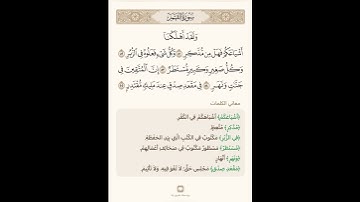 سورة القمر
وَلَقَدْ أَهْلَكْنَا
أَشْيَاعَكُمْ فَهَلْ مِن مُّدَّكِرٍ ۝ وَكُلُّ شَىْءٍ فَعَلُوهُ فِى ٱلزُّبُرِ ۝
وَكُلُّ صَغِيرٍ وَكَبِيرٍ مُّسْتَطَرٌ ۝ إِنَّ ٱلْمُتَّقِينَ فِى
جَنَّٰتٍ وَنَهَرٍ ۝ فِى مَقْعَدِ صِدْقٍ عِندَ مَلِيكٍ مُّقْتَدِرٍۭ ۝
معاني الكلمات
﴿أَشْيَاعَكُمْ﴾ أَشْبَاهَكُمْ فِي الْكُفْرِ.
﴿مُدَّكِرٍ﴾ مُتَّعِظٍ.
﴿فِي الزُّبُرِ﴾ مَكْتُوبٌ فِي الْكُتُبِ الَّتِي بِيَدِ الْحَفَظَةِ.
﴿مُسْتَطَرٌ﴾ مَسْطُورٌ مَكْتُوبٌ فِي صَحَائِفِ أَعْمَالِهِمْ.
﴿وَنَهَرٍ﴾ أَنْهَارٍ.
﴿مَقْعَدِ صِدْقٍ﴾ مَجْلِسِ حَقٍّ؛ لَا لَغْوَ فِيهِ، وَلَا تَأْثِيمَ.